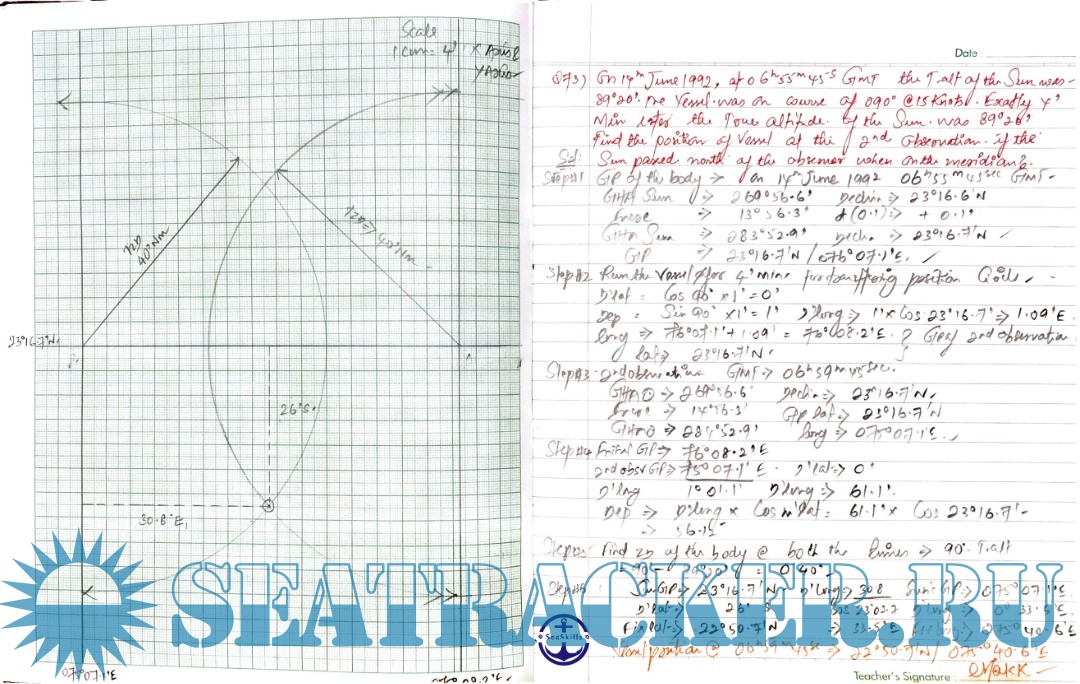 Scale
1 cm = 4' X Axis &
Y Axis
ZD
40' Nm
ZD => 40' Nm
23°16.7'N
26'S
30.8'E
Date :
Q73) On 14th June 1992, at 06h 55m 45s GMT the T.alt of the Sun was
89°20'. The Vessel was on course of 090° @ 15 Knots. Exactly 4'
Min later the True altitude of the Sun was 89°20'
Find the position of Vessel at the 2nd Observation. if the
Sun passed north of the observer when on the meridian?
Sol:
Step#1 GP of the body → on 14th June 1992 06h 55m 45sec GMT
GHA Sun => 269°56.6' Decln => 23°16.6'N
Incre => 13°56.3' d(0.1) => + 0.1'
GHA Sun => 283°52.9' decln => 23°16.7'N
GP => 23°16.7'N / 076°07.1'E.
Step#2 Run the vessel for 4' mins for transferring position Circle
D'lat = Cos 90° x 1' = 0'
Dep = Sin 90° x 1' = 1' D'long => 1' x Cos 23°16.7' => 1.09'E
long => 76°07.1' + 1.09' = 76°08.2'E. ? GP of 2nd observation
lat => 23°16.7'N
Step#3 2nd observation GMT => 06h 59m 45sec.
GHA => 269°56.6' Decln => 23°16.7'N
Incre => 14°56.3' GP lat => 23°16.7'N
GHA => 284°52.9' long => 075°07.1'E
Step#4 Initial GP => 76°08.2'E
2nd obsr GP => 75°07.1'E D'lat => 0'
D'lng 1°01.1' D'long => 61.1'
Dep => D'long x Cos m'lat = 61.1' x Cos 23°16.7'
=> 56.1
Step#5 Find ZD of the body @ both the times => 90° - T.alt
= 0°40'
Sun GP => 23°16.7'N D'long => 30.8 Sun GP => 075°07.1'E
D'lat => 26' S D'long => 0° 33.5'E
Fin lat => 22°50.7'N => 33.5'E 075°40.6'E
Vessel position @ 06h 59m 45s => 22°50.7'N / 075°40.6'E
Teacher's Signature :
SEATRACKER.RU
SeaSkills